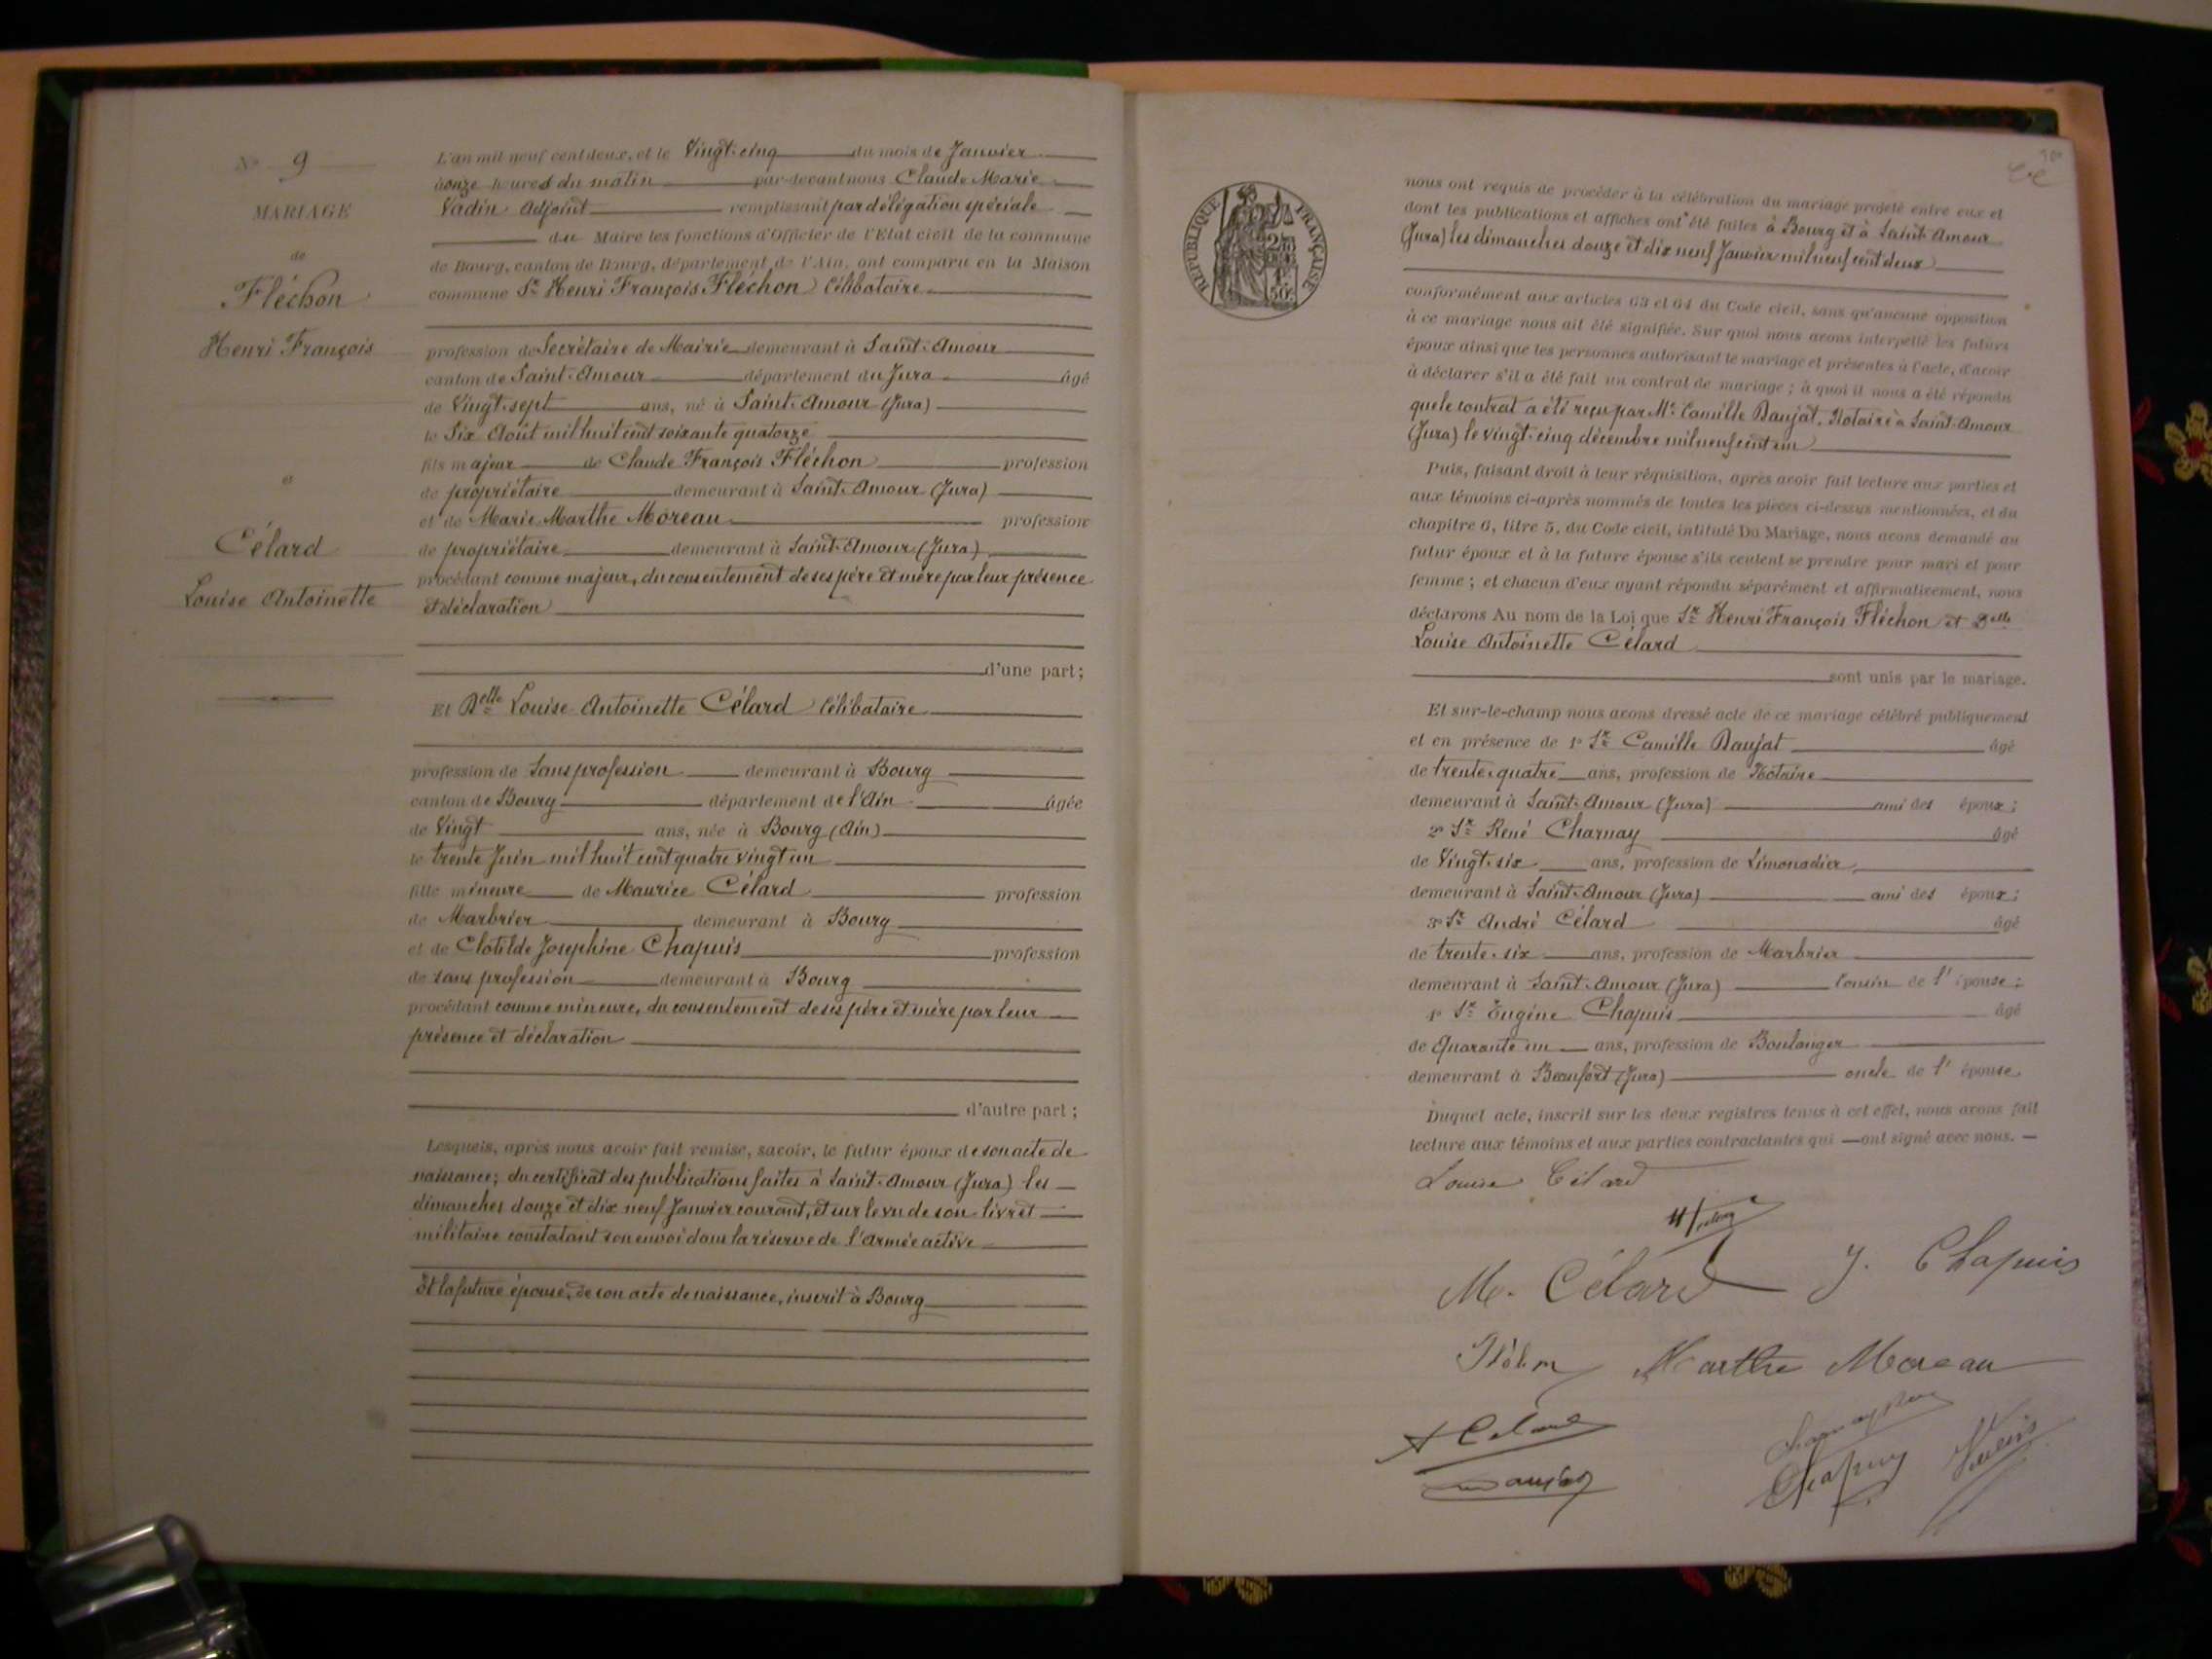 N° 9
MARIAGE
de
Fléchon
Henri François
et
Célard
Louise Antoinette
L'an mil neuf cent deux, et le Vingt-cinq du mois de Janvier
à onze heures du matin par-devant nous Claude Marie
Vadin Adjoint remplissant par délégation spéciale
du Maire les fonctions d'Officier de l'Etat civil de la commune
de Bourg, canton de Bourg, département de l'Ain, ont comparu en la Maison
commune Sr Henri François Fléchon Célibataire
profession de Secrétaire de Mairie demeurant à Saint-Amour
canton de Saint-Amour département du Jura âgé
de Vingt-sept ans, né à Saint-Amour (Jura)
le Six Août mil huit cent soixante quatorze
fils majeur de Claude François Fléchon profession
de propriétaire demeurant à Saint-Amour (Jura)
et de Marie Marthe Moreau profession
de propriétaire demeurant à Saint-Amour (Jura)
procédant comme majeur, du consentement de ses père et mère par leur présence
et déclaration
d'une part;
Et Delle Louise Antoinette Célard Célibataire
profession de Sans profession demeurant à Bourg
canton de Bourg département de l'Ain âgée
de Vingt ans, née à Bourg (Ain)
le trente Juin mil huit cent quatre vingt un
fille mineure de Maurice Célard profession
de Marbrier demeurant à Bourg
et de Clotilde Josephine Chapuis profession
de sans profession demeurant à Bourg
procédant comme mineure, du consentement de ses père et mère par leur
présence et déclaration
d'autre part;
Lesquels, après nous avoir fait remise, savoir, le futur époux de son acte de
naissance; du certificat des publications faites à Saint-Amour (Jura) les
dimanches douze et dix neuf Janvier courant, et sur le vu de son livret
militaire constatant son envoi dans la réserve de l'armée active
Et la future épouse, de son acte de naissance, inscrit à Bourg
RÉPUBLIQUE FRANÇAISE
50c
nous ont requis de procéder à la célébration du mariage projeté entre eux et
dont les publications et affiches ont été faites à Bourg et à Saint-Amour
(Jura) les dimanches douze et dix neuf Janvier mil neuf cent deux
conformément aux articles 63 et 64 du Code civil, sans qu'aucune opposition
à ce mariage nous ait été signifiée. Sur quoi nous avons interpellé les futurs
époux ainsi que les personnes autorisant le mariage et présentes à l'acte, d'avoir
à déclarer s'il a été fait un contrat de mariage; à quoi il nous a été répondu
que le contrat a été reçu par Me Camille Daujat, Notaire à Saint-Amour
(Jura) le vingt-cinq décembre mil neuf cent un
Puis, faisant droit à leur réquisition, après avoir fait lecture aux parties et
aux témoins ci-après nommés de toutes les pièces ci-dessus mentionnées, et du
chapitre 6, titre 5, du Code civil, intitulé Du Mariage, nous avons demandé au
futur époux et à la future épouse s'ils veulent se prendre pour mari et pour
femme; et chacun d'eux ayant répondu séparément et affirmativement, nous
déclarons Au nom de la Loi que Sr Henri François Fléchon et Delle
Louise Antoinette Célard
sont unis par le mariage.
Et sur-le-champ nous avons dressé acte de ce mariage célébré publiquement
et en présence de 1° Sr Camille Daujat âgé
de trente-quatre ans, profession de Notaire
demeurant à Saint-Amour (Jura) ami des époux;
2° Sr René Charnay âgé
de Vingt-six ans, profession de Limonadier
demeurant à Saint-Amour (Jura) ami des époux;
3° Sr André Célard âgé
de trente-six ans, profession de Marbrier
demeurant à Saint-Amour (Jura) Cousin de l'épouse;
4° Sr Eugène Chapuis âgé
de Quarante un ans, profession de Boulanger
demeurant à Beaufort (Jura) oncle de l'épouse
Duquel acte, inscrit sur les deux registres tenus à cet effet, nous avons fait
lecture aux témoins et aux parties contractantes qui ont signé avec nous.
Louise Célard
M. Célard J. Chapuis
Marthe Moreau
A Celard
Daujat
Chapuis